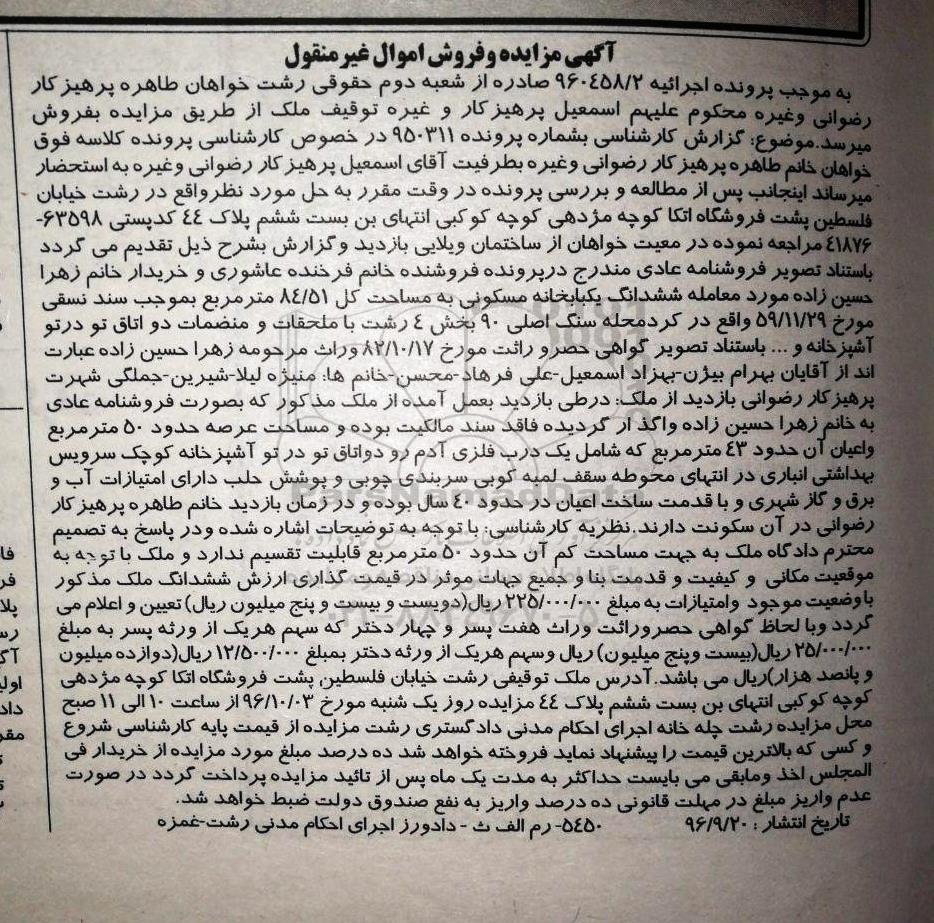 آگهی مزایده و فروش اموال غیر منقول
به موجب پرونده اجرائیه ۹۶۰۴۵۸/۲ صادره از شعبه دوم حقوقی رشت خواهان طاهره پرهیز کار
رضوانی وغیره محکوم علیهم اسمعیل پرهیز کار و غیره توقیف ملک از طریق مزایده بفروش
میرسد.موضوع: گزارش کارشناسی بشماره پرونده ۹۵۰۳۱۱ در خصوص کارشناسی پرونده کلاسه فوق
خواهان خانم طاهره پرهیز کار رضوانی وغیره بطرفیت آقای اسمعیل پرهیز کار رضوانی وغیره به استحضار
میرساند اینجانب پس از مطالعه و بررسی پرونده در وقت مقرر به حل مورد نظر واقع در رشت خیابان
فلسطین پشت فروشگاه اتکا کوچه مژدهی کوچه کوکبی انتهای بن بست ششم پلاک ٤٤ کدپستی ۶۳۵۹۸-
٤۱۸۷۶ مراجعه نموده در معیت خواهان از ساختمان ویلایی بازدید و گزارش بشرح ذیل تقدیم می گردد
باستناد تصویر فروشنامه عادی مندرج درپرونده فروشنده خانم فرخنده عاشوری و خریدار خانم زهرا
حسین زاده مورد معامله ششدانگ یکبابخانه مسکونی به مساحت کل ۸٤/۵۱ مترمربع بموجب سند نسقی
مورخ ۵۹/۱۱/۲۹ واقع در کردمحله سنگ اصلی ۹۰ بخش ٤ رشت با ملحقات و منضمات دو اتاق تو درتو
آشپزخانه و ... باستناد تصویر گواهی حصرو راثت مورخ ۸۲/۱۰/۱۷ وراث مرحومه زهرا حسین زاده عبارت
اند از آقایان بهرام بیژن-بهزاد اسمعیل-علی فرهاد-محسن-خانم ها: منیژه لیلا-شیرین-جملگی شهرت
پرهیز کار رضوانی بازدید از ملک: درطی بازدید بعمل آمده از ملک مذکور که بصورت فروشنامه عادی
به خانم زهرا حسین زاده واگذ ار گردیده فاقد سند مالکیت بوده و مساحت عرصه حدود ۵۰ مترمربع
واعیان آن حدود ٤۳ مترمربع که شامل یک درب فلزی آدم رو دواتاق تو در تو آشپزخانه کوچک سرویس
بهداشتی انباری در انتهای محوطه سقف لمبه کوبی سربندی چوبی و پوشش حلب دارای امتیازات آب و
برق و گاز شهری و با قدمت ساخت اعیان در حدود ٤۰ سال بوده و در زمان بازدید خانم طاهره پرهیز کار
رضوانی در آن سکونت دارند.نظریه کارشناسی: با توجه به توضیحات اشاره شده ودر پاسخ به تصمیم
محترم دادگاه ملک به جهت مساحت کم آن حدود ۵۰ مترمربع قابلیت تقسیم ندارد و ملک با توجه به
موقعیت مکانی و کیفیت و قدمت بنا و جمیع جهات موثر در قیمت گذاری ارزش ششدانگ ملک مذکور
با وضعیت موجود وامتیازات به مبلغ ۲۲۵/۰۰۰/۰۰۰ ریال(دویست و بیست و پنج میلیون ریال) تعیین و اعلام می
گردد وبا لحاظ گواهی حصروراثت وراث هفت پسر و چهار دختر که سهم هریک از ورثه پسر به مبلغ
۲۵/۰۰۰/۰۰۰ ریال(بیست وپنج میلیون) ریال وسهم هریک از ورثه دختر بمبلغ ۱۲/۵۰۰/۰۰۰ ریال(دوازده میلیون
و پانصد هزار)ریال می باشد.آدرس ملک توقیفی رشت خیابان فلسطین پشت فروشگاه اتکا کوچه مژدهی
کوچه کوکبی انتهای بن بست ششم پلاک ٤٤ مزایده روز یک شنبه مورخ ۹۶/۱۰/۰۳ از ساعت ۱۰ الی ۱۱ صبح
محل مزایده رشت چله خانه اجرای احکام مدنی دادگستری رشت مزایده از قیمت پایه کارشناسی شروع
و کسی که بالاترین قیمت را پیشنهاد نماید فروخته خواهد شد ده درصد مبلغ مورد مزایده از خریدار فی
المجلس اخذ ومابقی می بایست حداکثر به مدت یک ماه پس از تائید مزایده پرداخت گردد در صورت
عدم واریز مبلغ در مهلت قانونی ده درصد واریز به نفع صندوق دولت ضبط خواهد شد.
تاریخ انتشار : ۹۶/۹/۲۰ ۵٤۵۰- رم الف ث - دادورز اجرای احکام مدنی رشت-غمزه
ParsNamadData